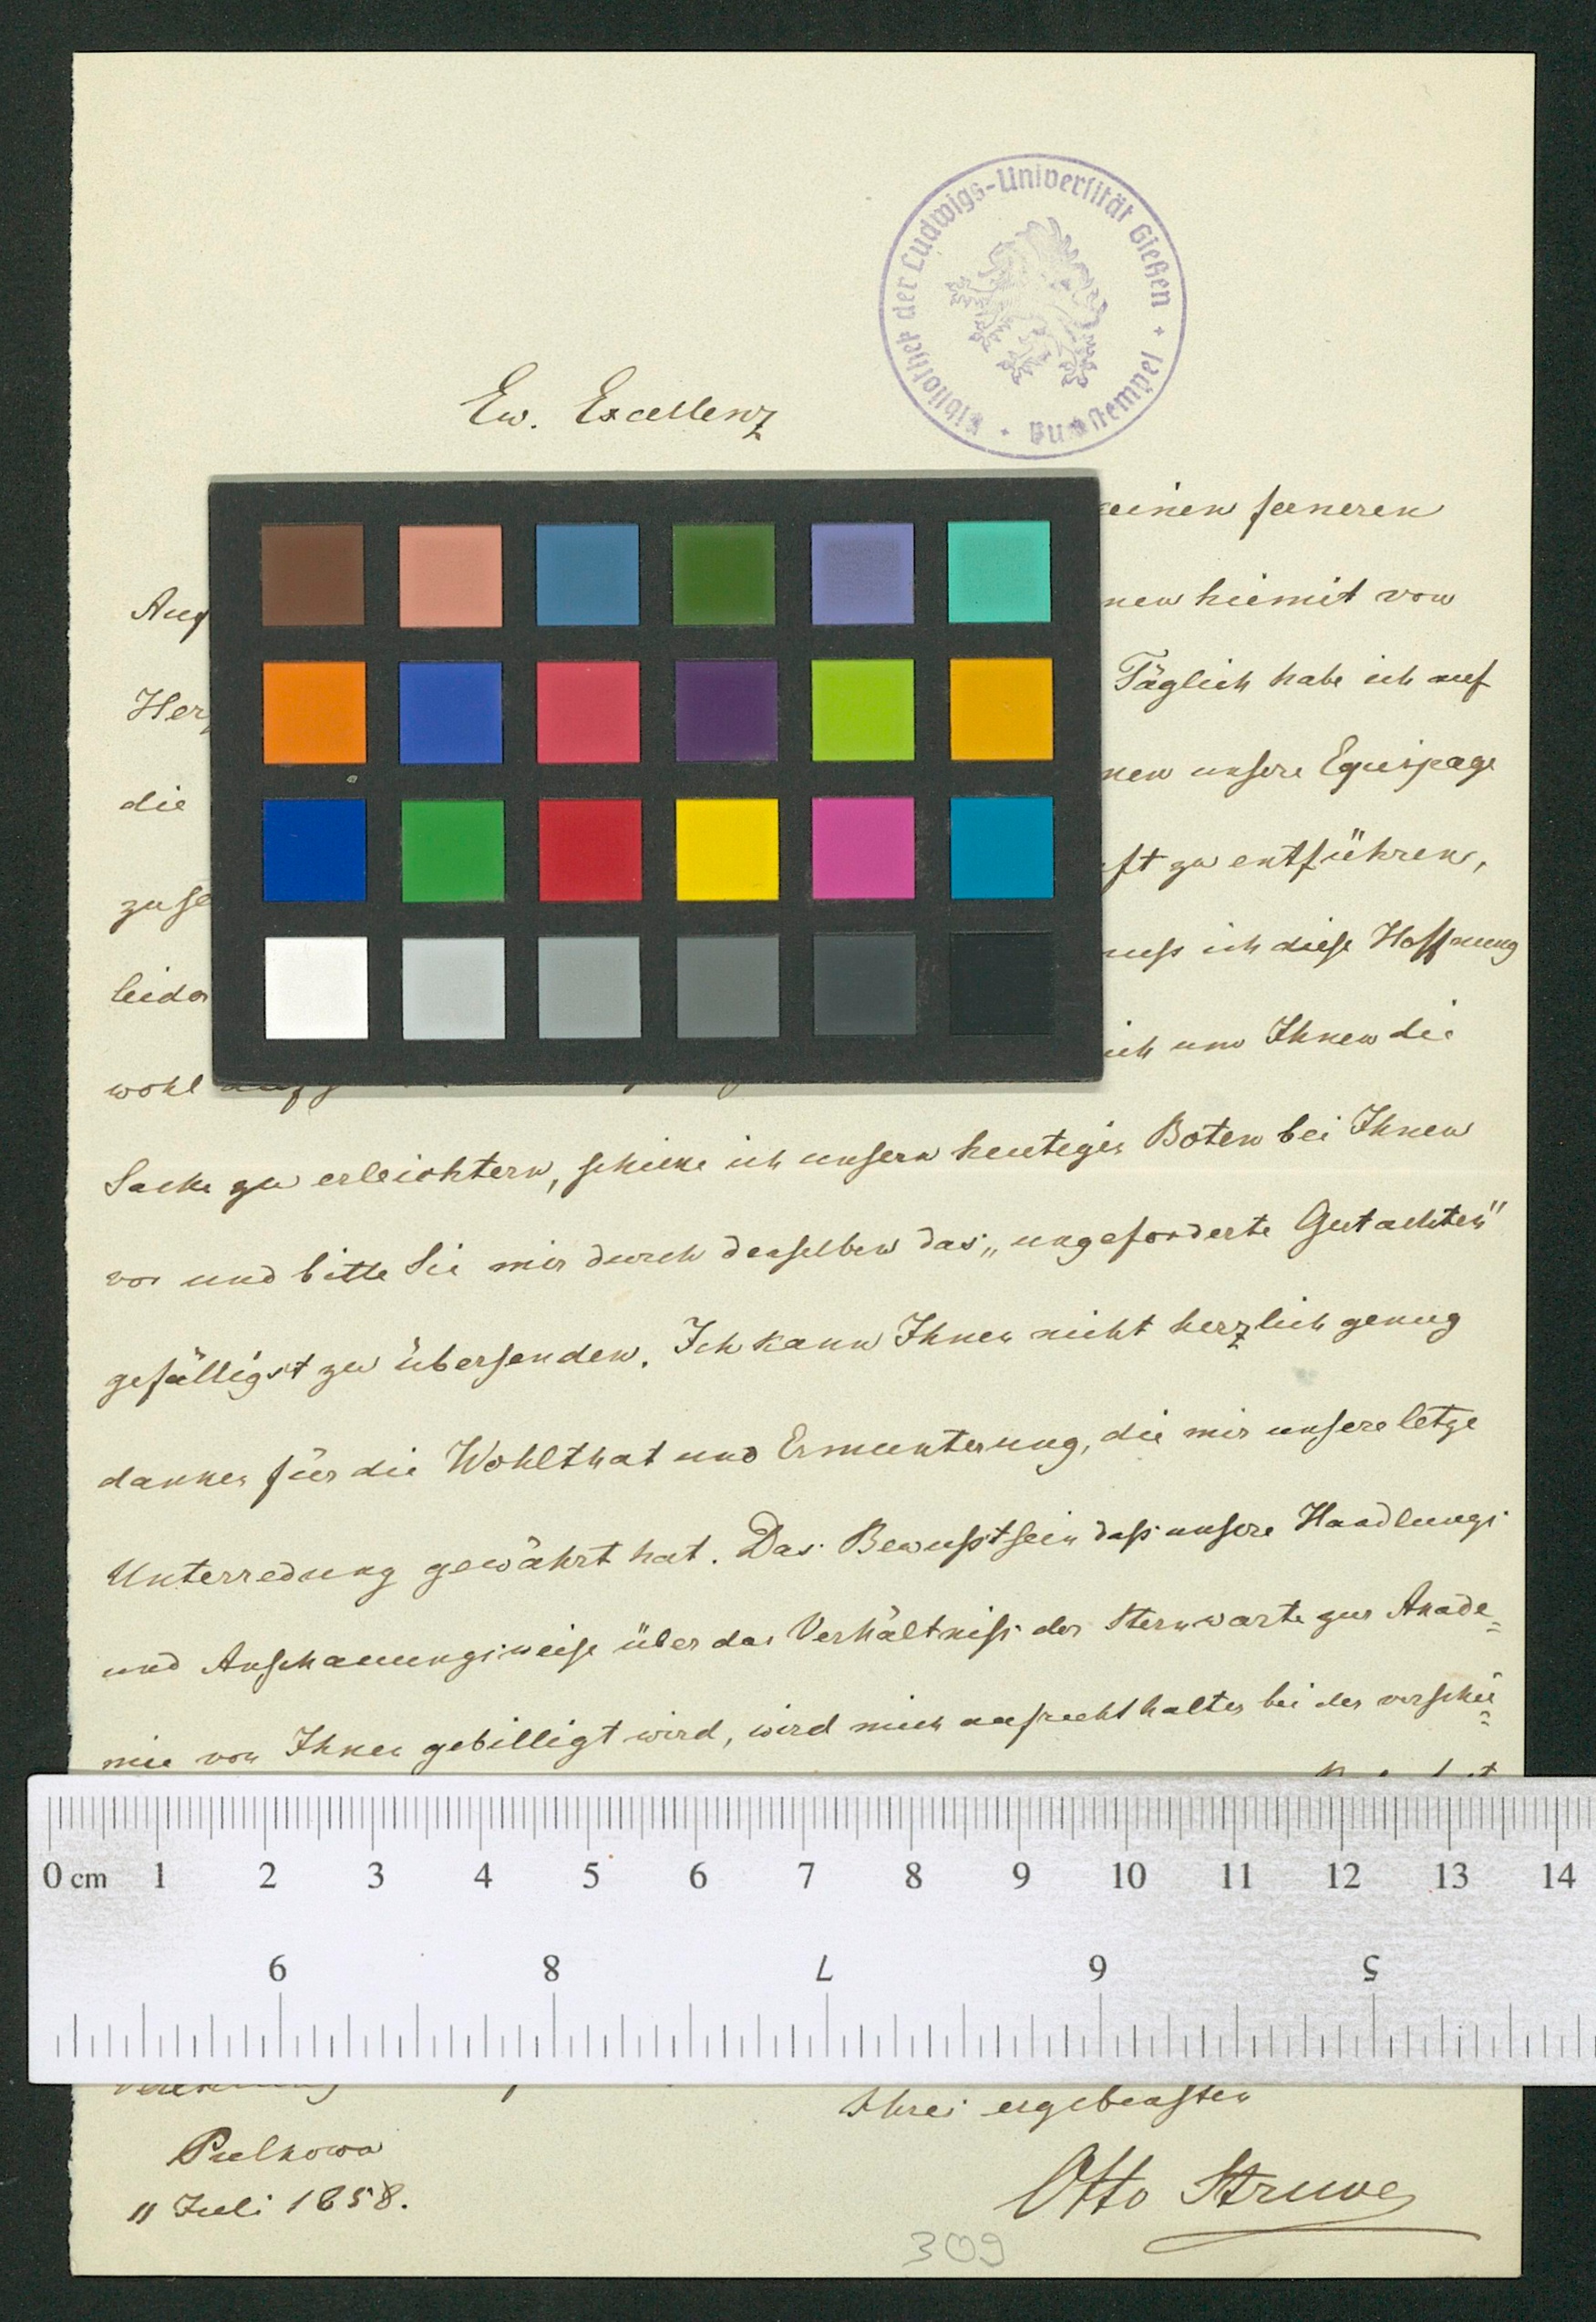 Bibliothek der Ludwigs-Universität Gießen
Ew. Excellenz
einen ferneren
hiemit von
Täglich habe ich auf
die unsere Equipage
zu entführen,
muss ich diese Hoffnung
ich um Ihnen die
wohl
Sache zu erleichtern, schicke ich unsern heutigen Boten bei Ihnen
vor und bitte Sie mir durch denselben das „ungeforderte Gutachten"
gefälligst zu übersenden. Ich kann Ihnen nicht herzlich genug
danken für die Wohlthat und Ermunterung, die mir unsere letze
Unterredung gewährt hat. Das Bewusstsein dass unsere Handlungs
und Anschauungsweise über das Verhältniss der Sternwarte zur Akade=
mie von Ihnen gebilligt wird, wird mich aufrecht halten bei der
0 cm 1 2 3 4 5 6 7 8 9 10 11 12 13 14
9 8 7 6 5
Ihres ergebensten
Pulkowa
11 Juli 1858.
Otto Struve
309